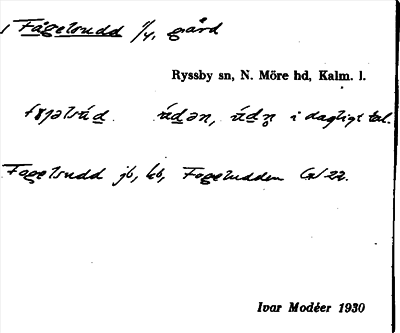 1 Fågelsudd 1/4, gård
Ryssby sn, N. Möre hd, Kalm. l.
i dagligt tal.
Fogelsudd jb, kb, Fogeludden GS 22.
Ivar Modéer 1930